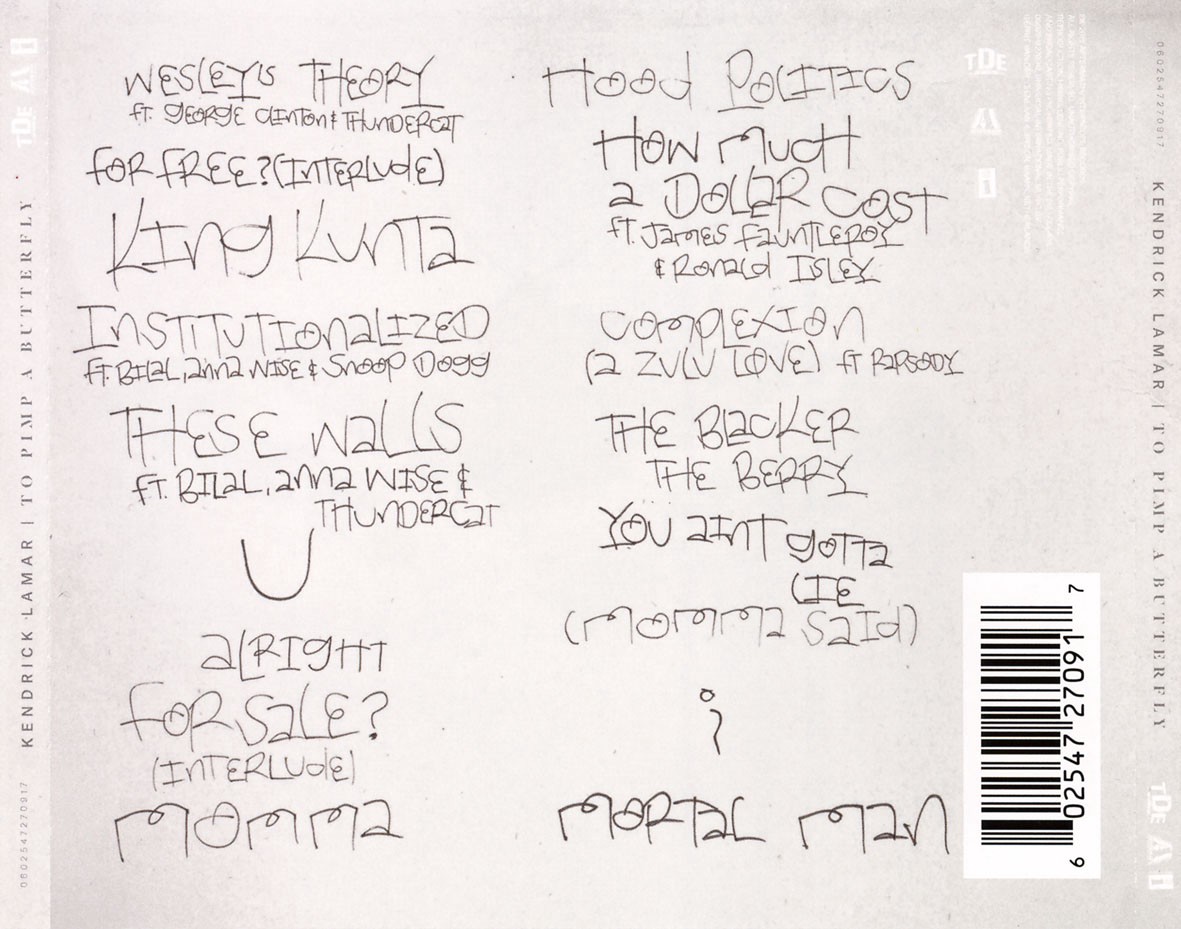 KENDRICK LAMAR | TO PIMP A BUTTERFLY
0602547270917
TDE
WESLEY'S THEORY
ft. GEORGE CLINTON & THUNDERCAT
FOR FREE? (INTERLUDE)
KING KUNTA
INSTITUTIONALIZED
ft. BILAL, anna WISE & Snoop Dogg
THESE WALLS
ft. BILAL, anna WISE &
THUNDERCAT
U
ALRIGHT
FOR SALE?
(INTERLUDE)
MOMMA
HOOD POLITICS
HOW MUCH
a DOLLAR COST
ft. JAMES FAUNTLEROY
& RONALD ISLEY
COMPLEXION
(a ZULU LOVE) ft RAPSODY
THE BLACKER
THE BERRY
YOU AINT GOTTA
LIE
(MOMMA SAID)
i
MORTAL MAN
TDE
6 02547 27091 7
0602547270917
KENDRICK LAMAR | TO PIMP A BUTTERFLY
TDE